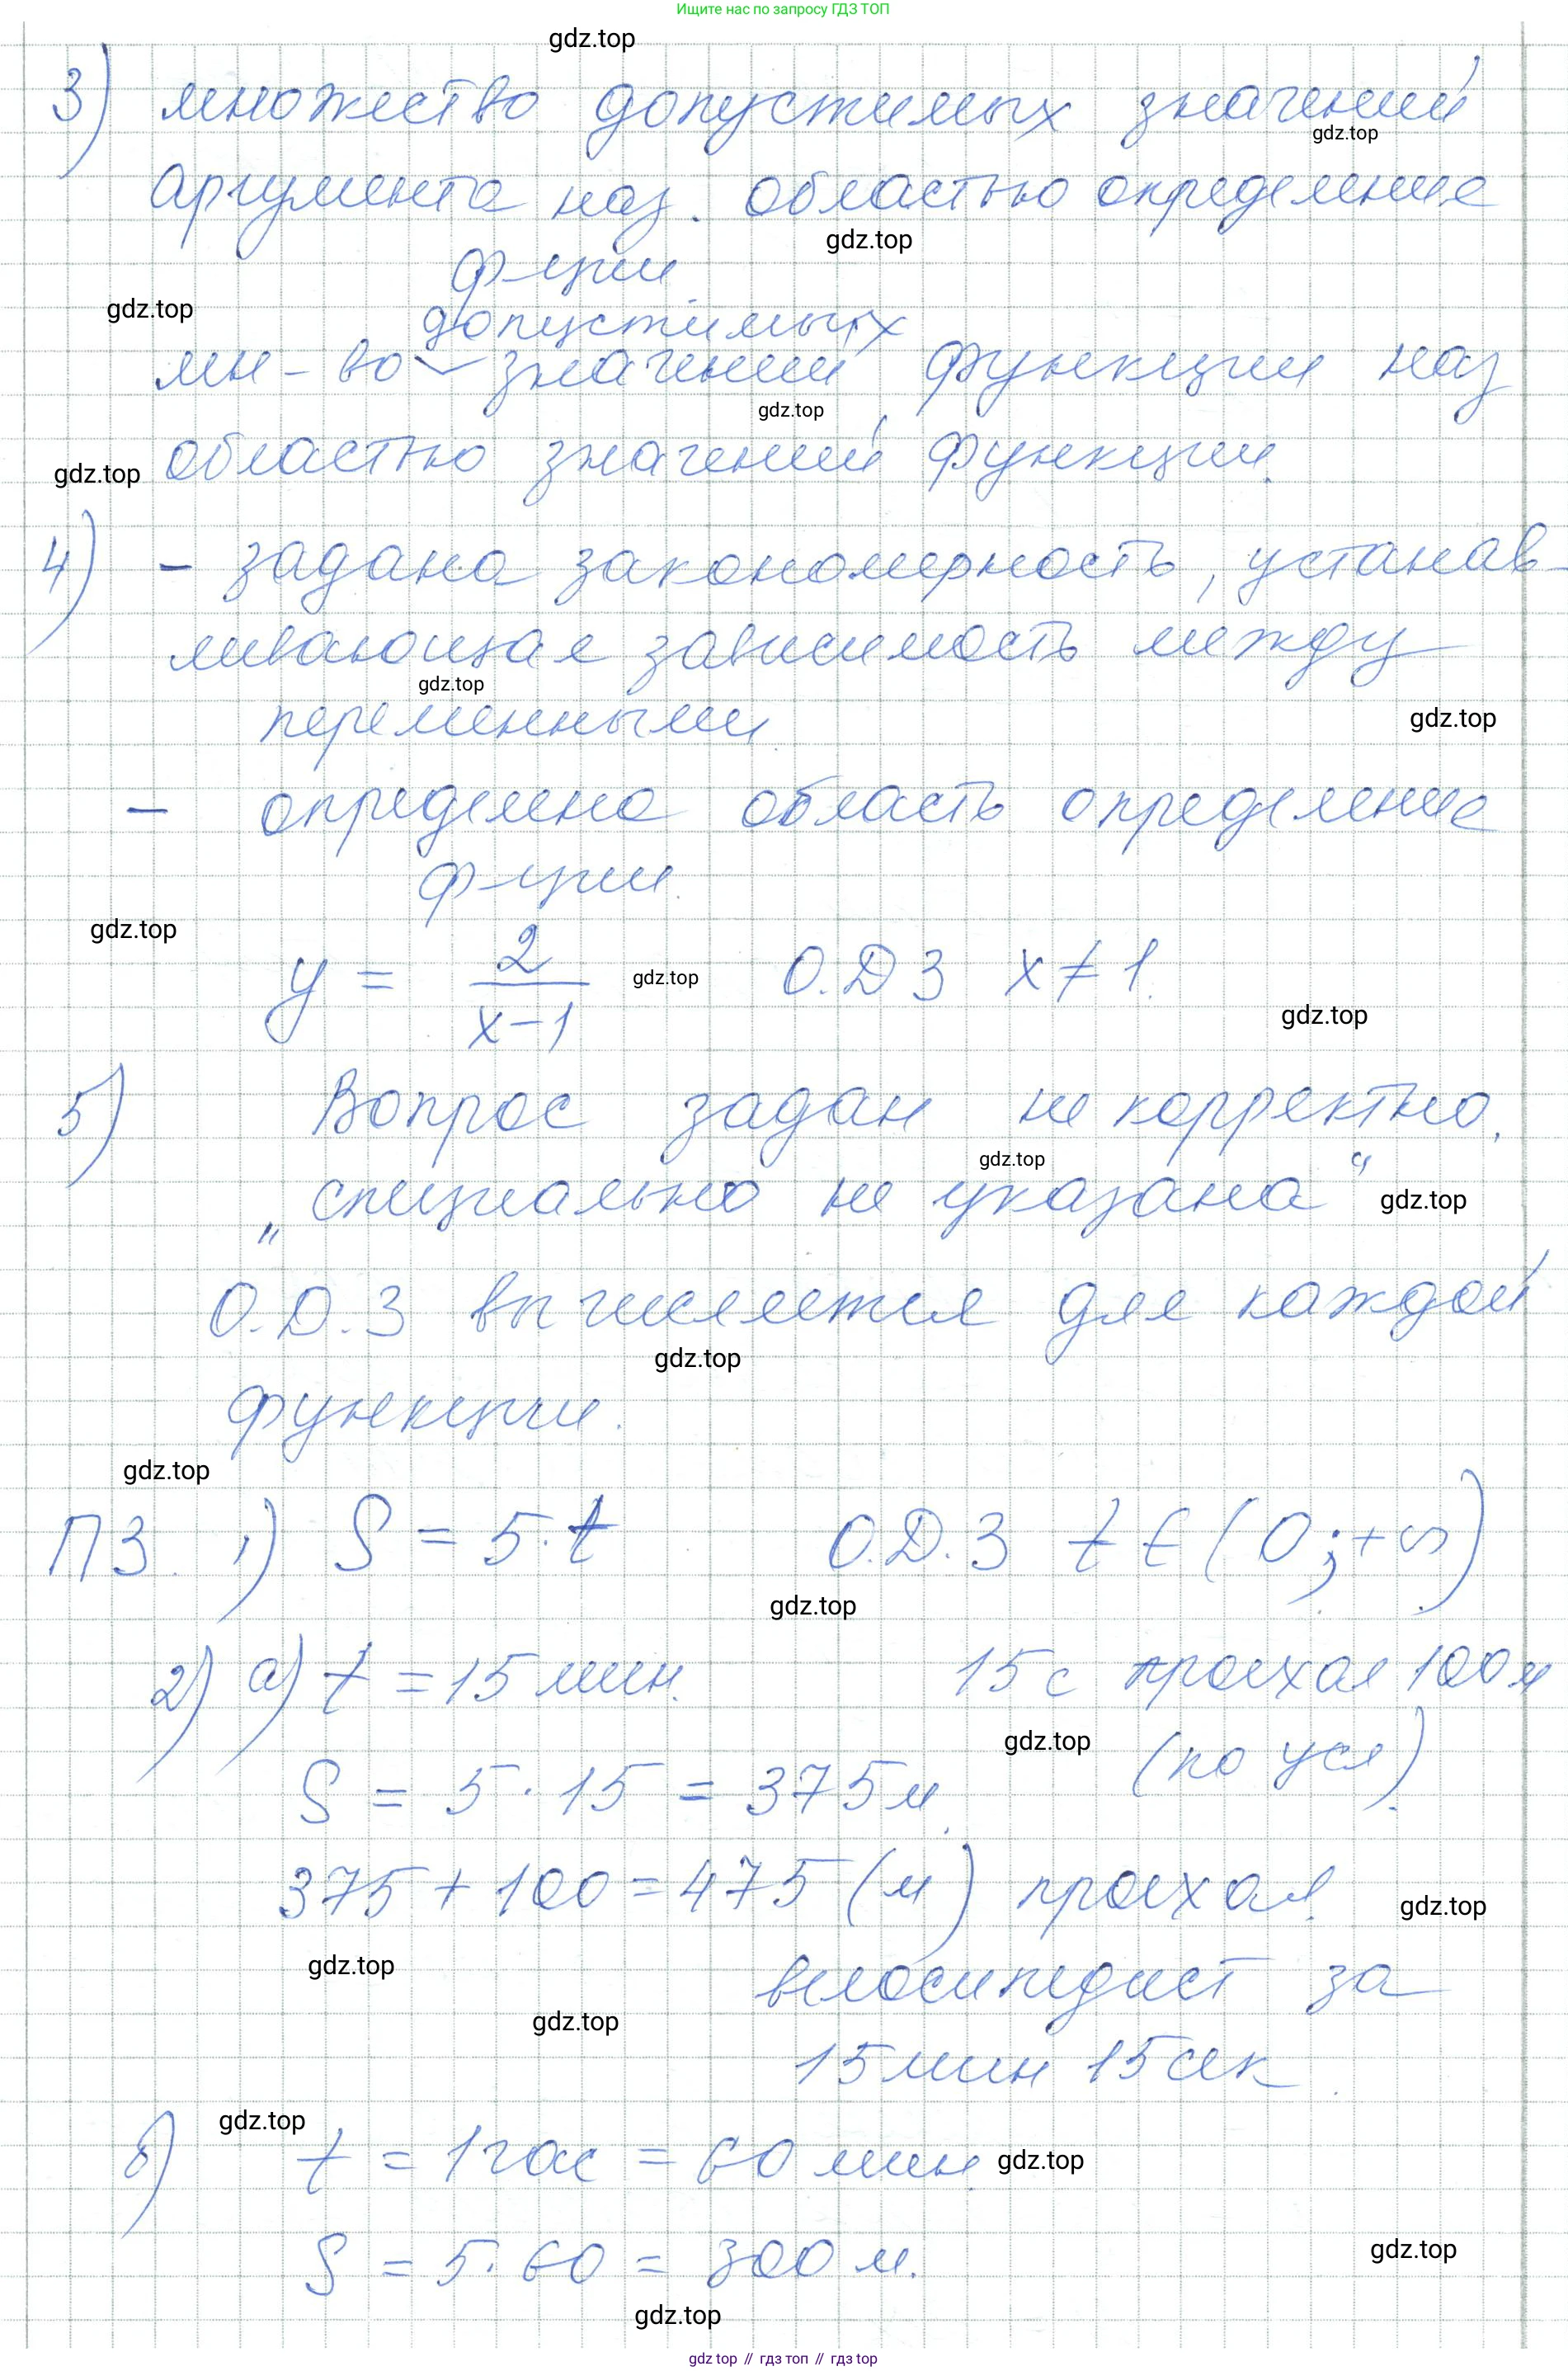 Ищите нас по запросу ГДЗ ТОП
gdz.top
3) множество допустимых значений
gdz.top
Аргумента наз. областью определение
gdz.top
ф-ции
gdz.top
допустимых
мн-во значений функции наз
gdz.top
областью значений функции.
gdz.top
4) - задано закономерность, устанав-
ливающая зависимость между
gdz.top
переменными
gdz.top
- определена область определение
ф-ции.
gdz.top
y = 2/(x-1) gdz.top О.ДЗ x≠1.
gdz.top
5) Вопрос задан не корректно.
gdz.top
„специально не указана“ gdz.top
О.Д.З вычисляется для каждой
gdz.top
функции.
gdz.top
ПЗ. 1) S = 5·t О.Д.З t∈(0;+∞)
gdz.top
2) а) t = 15 мин. 15 с проехал 100м
gdz.top (по усл).
S = 5·15 = 375м.
375+100=475(м) проехал.
gdz.top
gdz.top
велосипедист за
gdz.top
15 мин 15 сек.
gdz.top
б) t = 1час = 60 мин. gdz.top
S = 5·60 = 300 м. gdz.top
gdz.top
gdz.top // гдз топ // гдз top